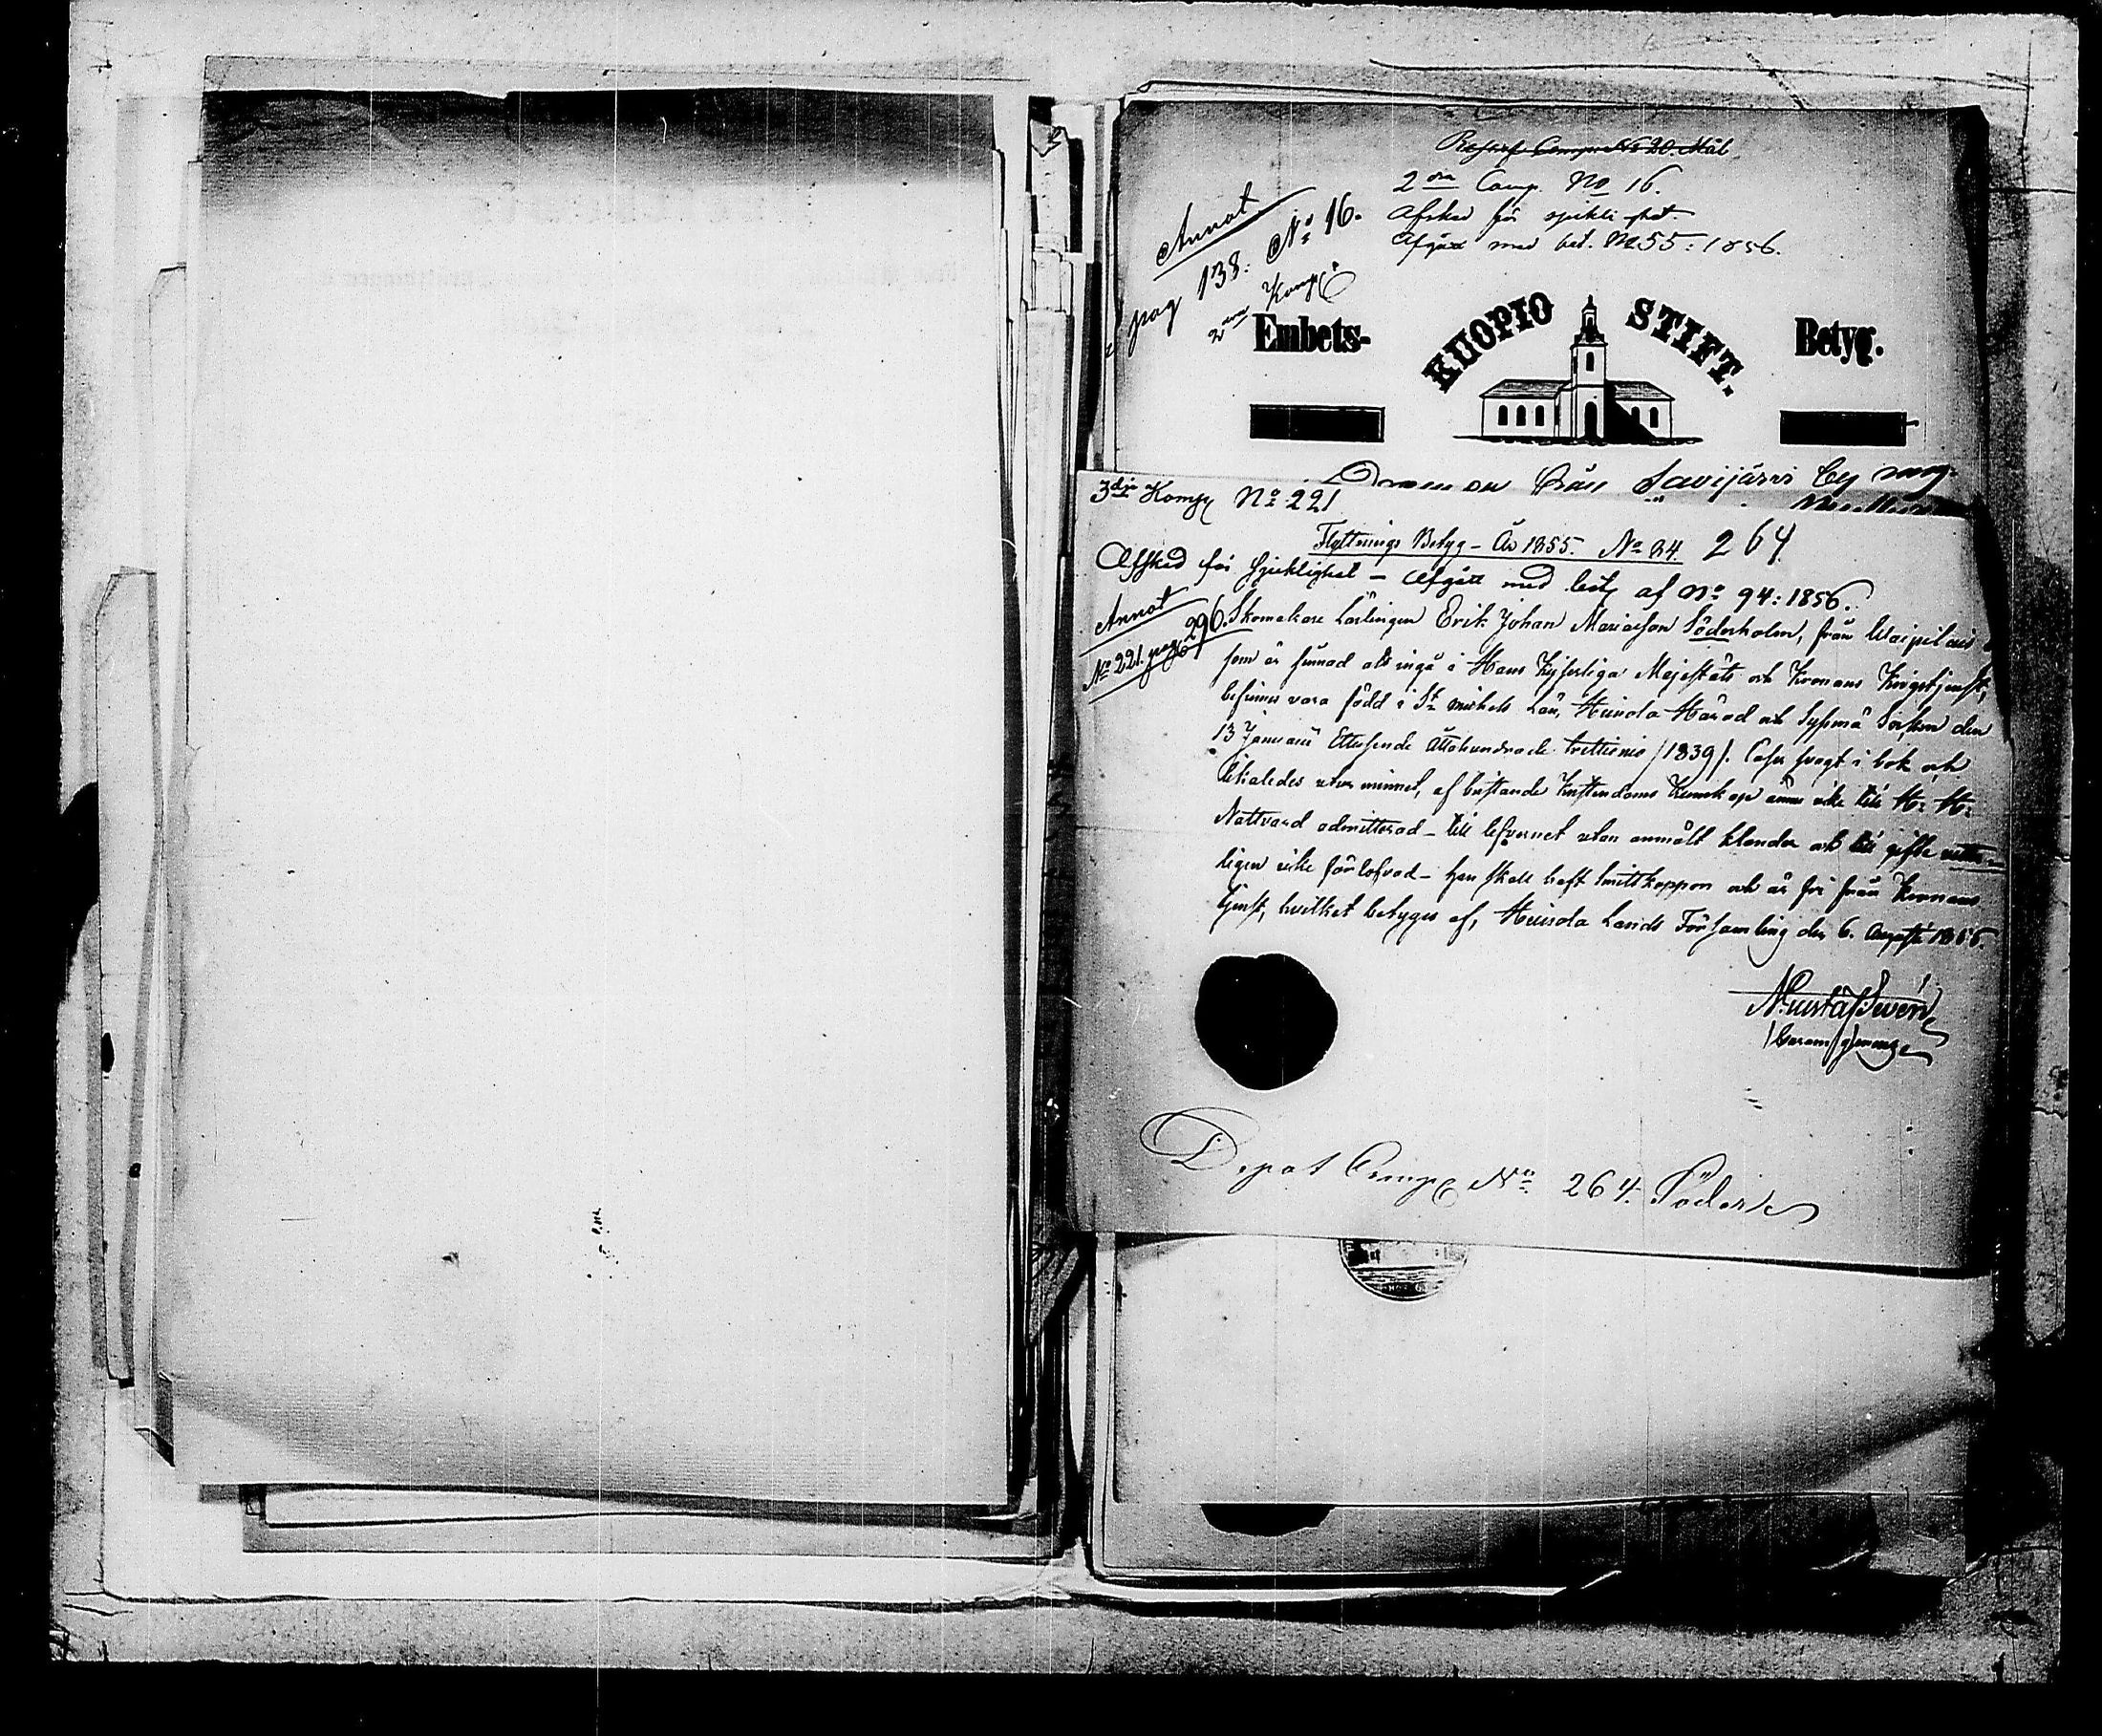 Comp. No 20. Mål
2dra Comp. No 16.
Afsked för sjukli-het.
Afgått med bet. No 55: 1856.
Annot
pag 138: No 16.
2dra Komp.
Embets-
KUOPIO STIFT.
Betyg.
från Savijärvi by
3dje Komp No 221
Flyttnings Betyg - År 1855. No 84. 264
Afsked för sjuklighet - Afgått med bet. af No 94: 1856.
Annot
No 221. pag 296.
Skomakare Lärlingen Erik Johan Söderholm, från
som är sinnad att ingå i Hans Kejserliga Majestäts och Kronans Krigstjenst,
befinnes vara född i St Michels Län, Heinola Härad och Sysmä Socken den
13 Januarii Ettusende Åttahundrade trettionio /1839/. Läser svagt i bok och
likaledes utur minnet, af bristande Kristendoms Kunskap ännu icke till H: H:
Nattvard admitterad - till lefvernet utan anmäldt klander och till gifte vetter-
ligen icke förlofvad - han skall haft smittkoppor och är fri från Kronans
tjenst, hvilket betygas af, Heinola Lands Församling den 6. Augusti 1855.
Depot Comp No 264.